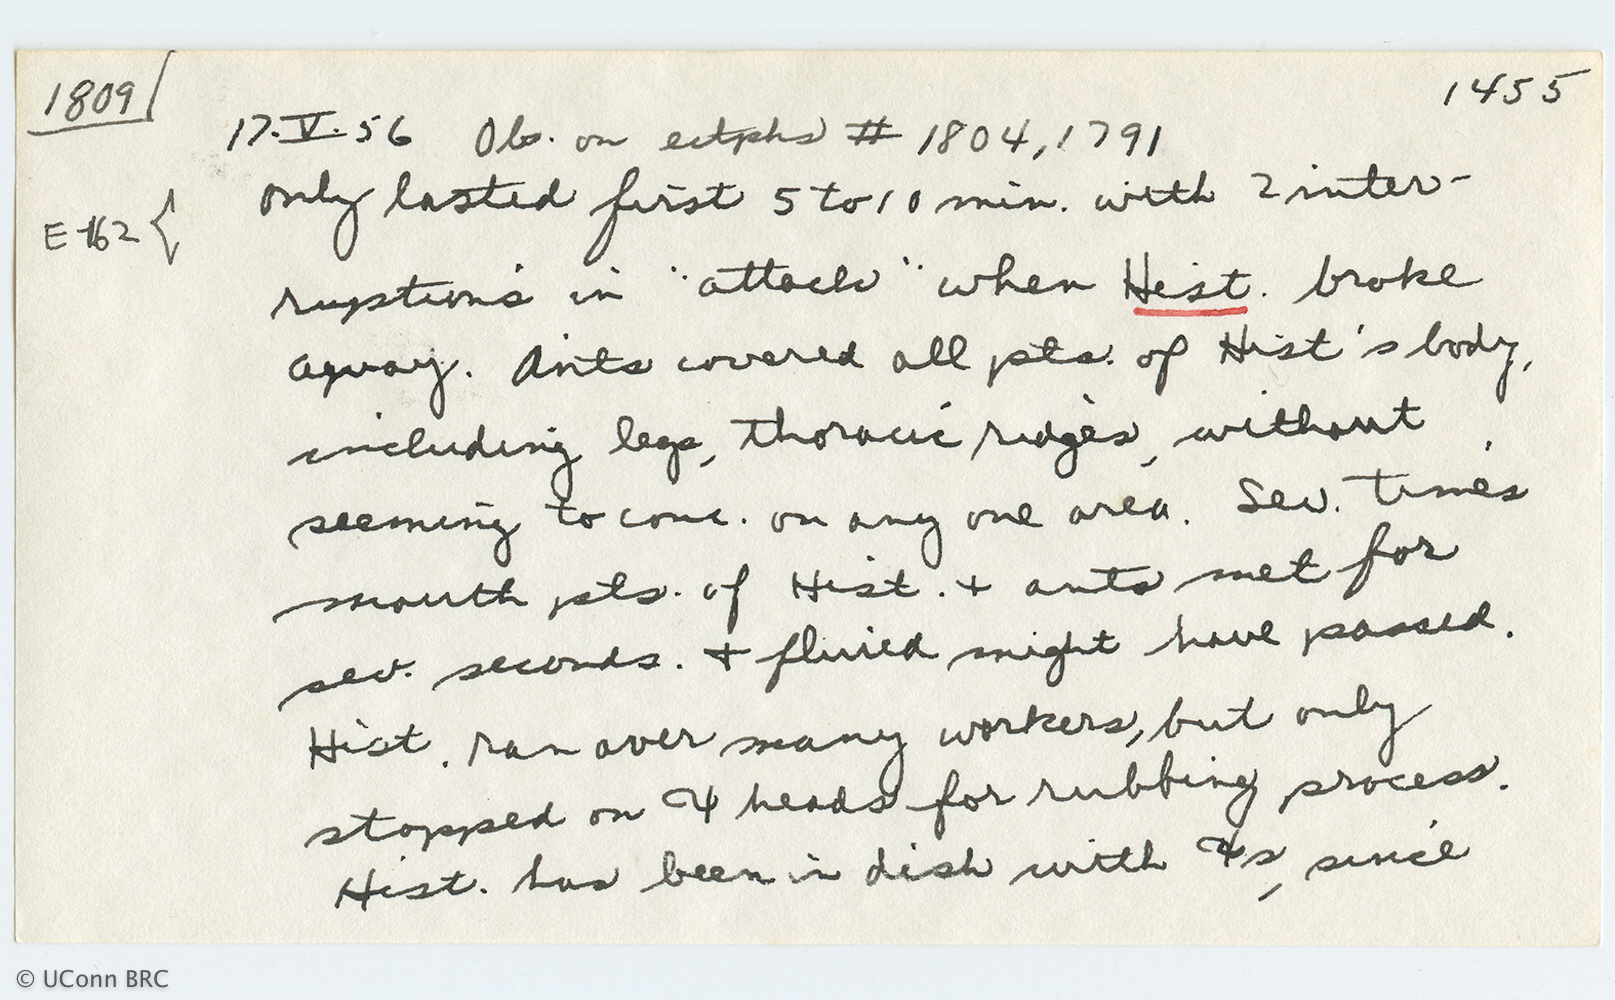 1809
1455
17·V·56 Obs. on ectphs # 1804, 1791
E-162 {
only lasted first 5 to 10 min. with 2 inter-
ruptions in "attack" when Hist. broke
away. Ants covered all pts. of Hist's body,
including legs, thoracic ridges, without
seeming to conc. on any one area. Sev. times
mouth pts. of Hist. + ants met for
sev. seconds. + fluied might have passed.
Hist. ran over many workers, but only
stopped on heads for rubbing process.
Hist. has been in dish with since
© UConn BRC